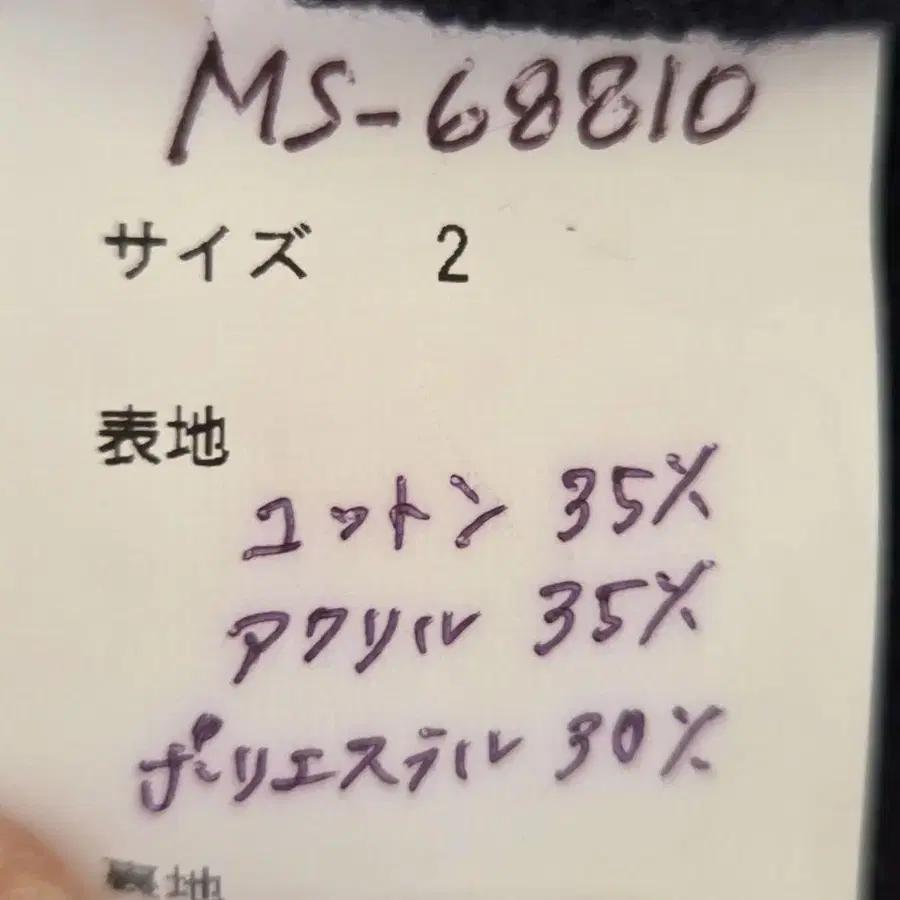 MS-68810
サイズ 2
表地
コットン 35%
アクリル 35%
ポリエステル 30%
裏地